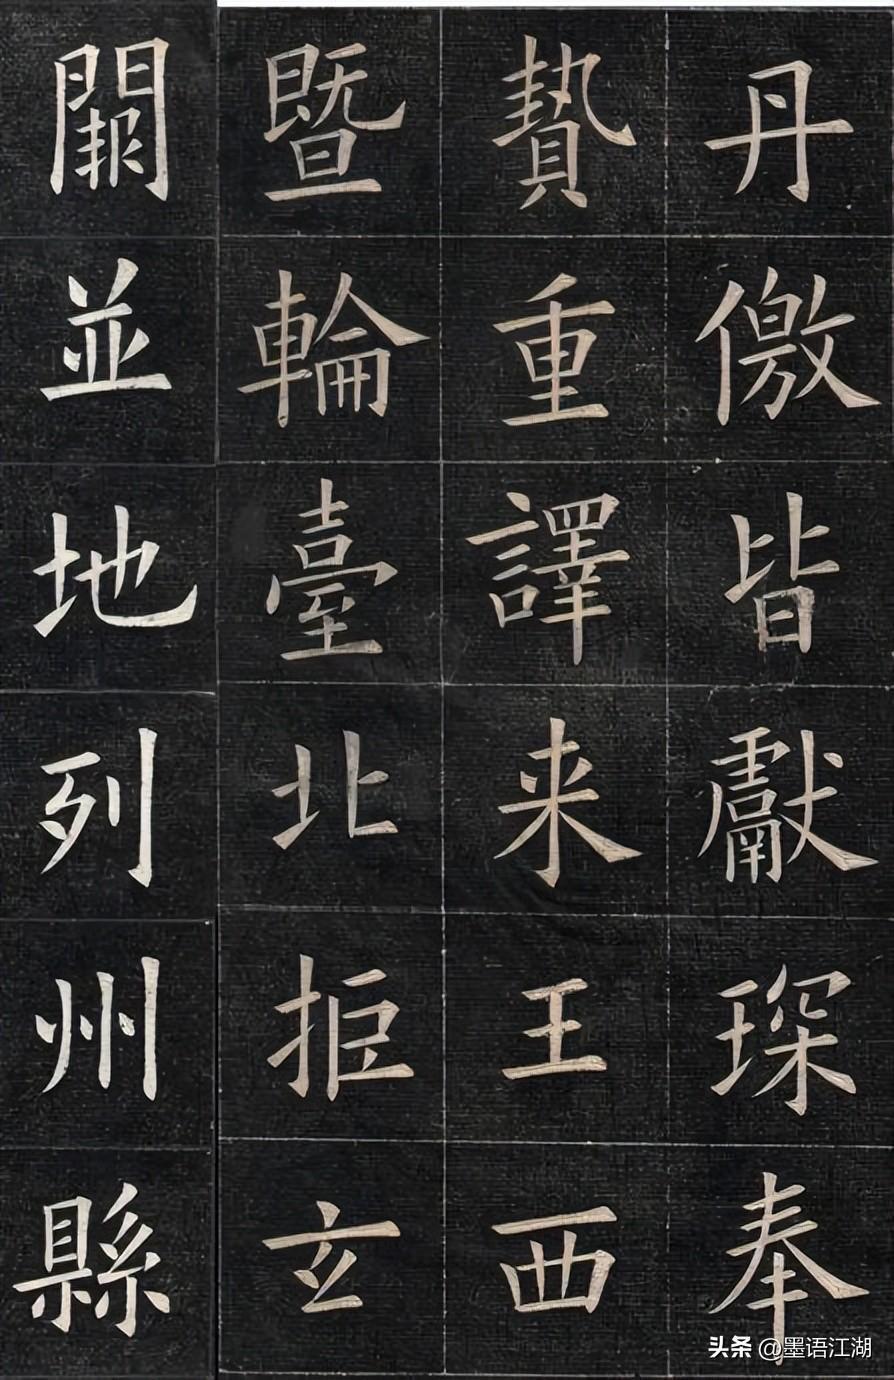 丹徼皆獻琛奉
贄重譯来王西
暨輪臺北拒玄
闕並地列州縣
头条 @墨语江湖